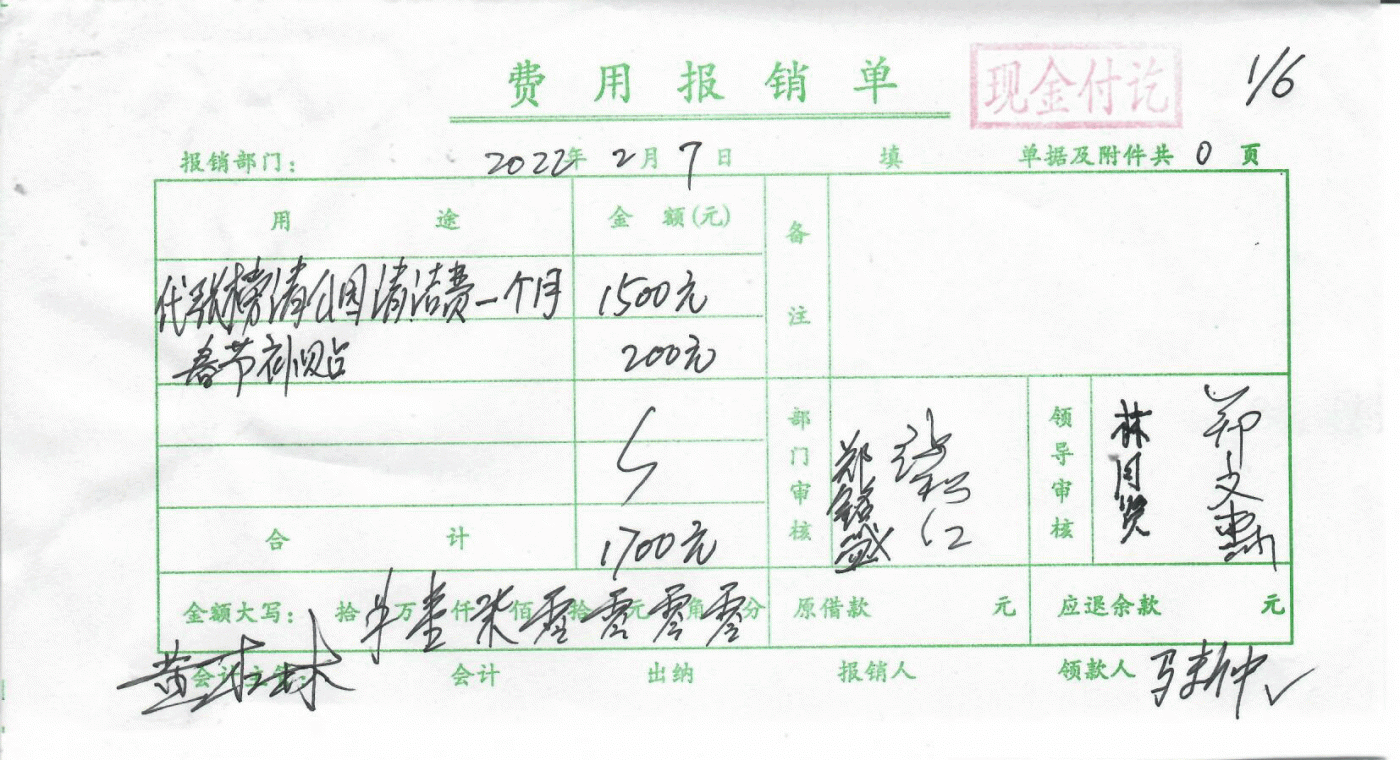 费用报销单
现金付讫
1/6
报销部门: 2022年 2月 7日 填 单据及附件共 0 页
用途 金额(元) 备注
代张榜清公园清洁费一个月 1500元
春节补贴 200元
部门审核 郑铭盛 领导审核 林同贤 郑文
合计 1700元
金额大写: 拾 万壹仟柒佰零拾零元零角零分 原借款 元 应退余款 元
会计主管 会计 出纳 报销人 领款人 马新仲